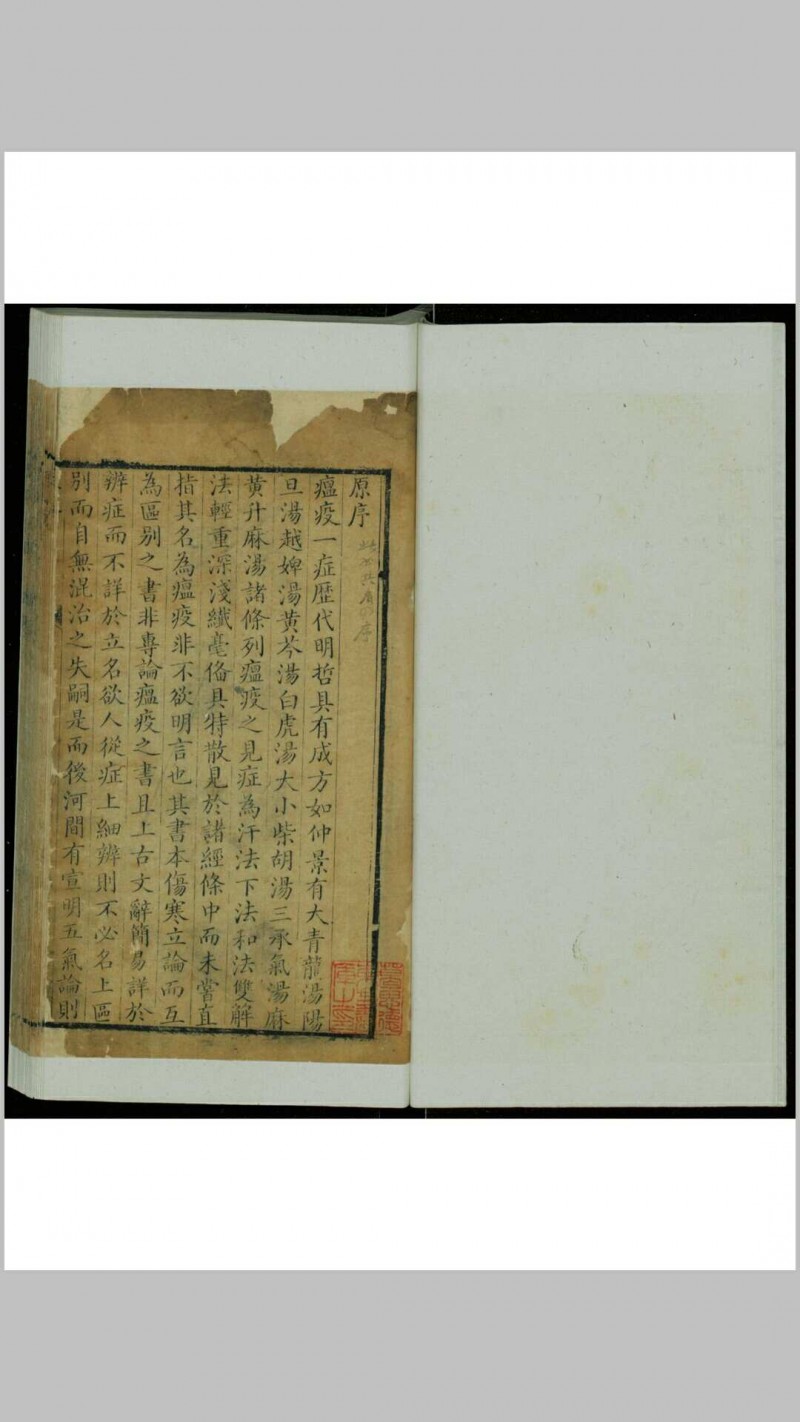 原序
瘟疫一症歷代明哲具有成方如仲景有大青龍湯陽
旦湯越婢湯黄芩湯白虎湯大小柴胡湯三承氣湯麻
黄升麻湯諸條列瘟疫之見症為汗法下法和法雙觧
法輕重深淺纎毫俻具特散見於諸經條中而未嘗直
指其名為瘟疫非不欲明言也其書本傷寒立論而互
為區别之書非專論瘟疫之書且上古文辭簡易詳於
辨症而不詳於立名欲人從症上細辨則不必名上區
别而自無混治之失嗣是而後河間有宣明五氣論則